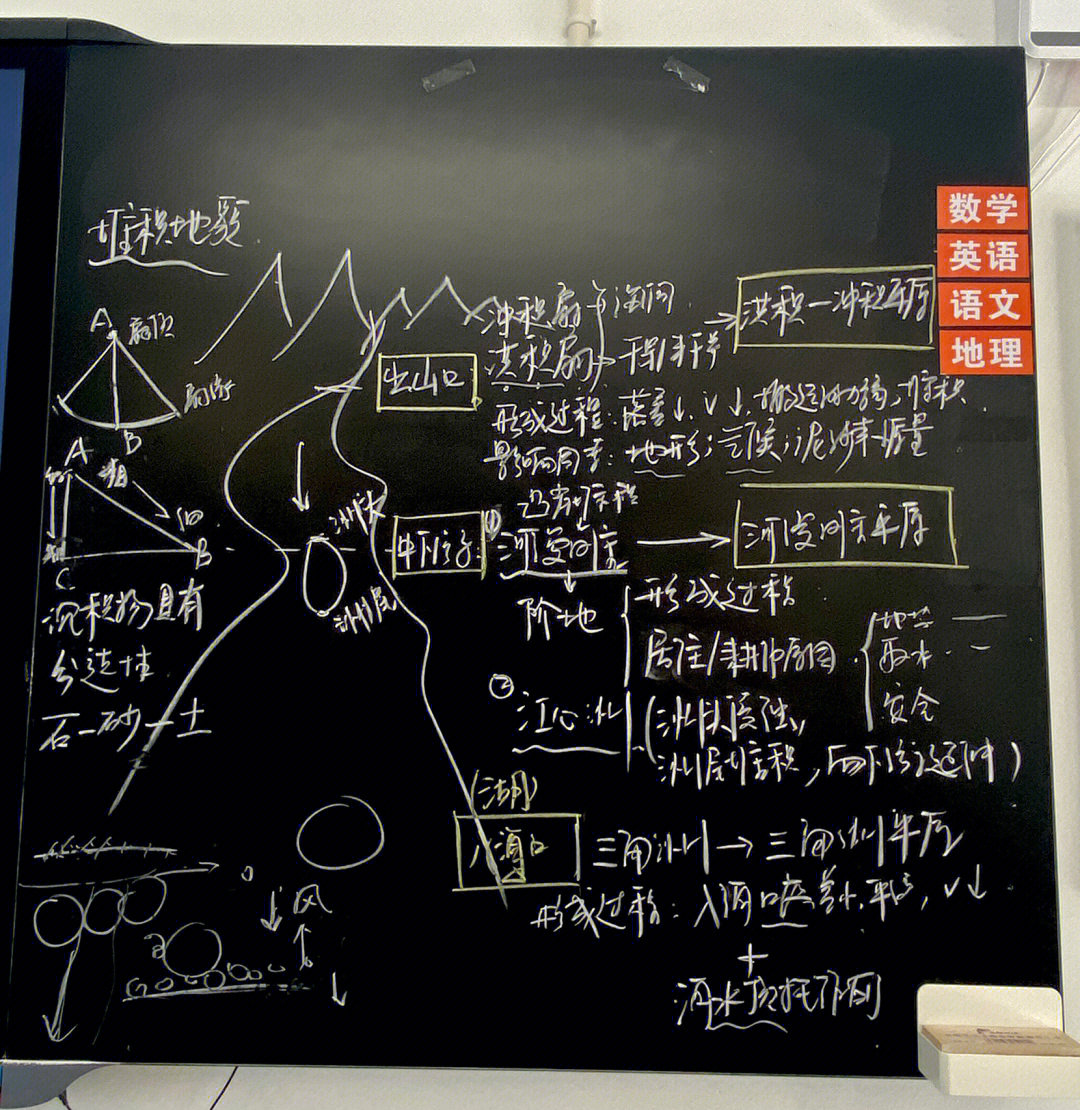 堆积地貌
数学
英语
语文
地理
A 扇顶
扇缘
B
A
粗
细
B
C
沉积物具有
分选性
石—砂—土
出山口
冲积扇
洪积扇 → 干旱/半干旱
洪积—冲积平原
形成过程:落差↓,v↓,搬运能力减弱,堆积
影响因素:地形;气候;泥沙来源量
凸岸堆积
中下游
洲头
洲尾
① 河漫 → 河漫平原
阶地
形成过程
居住/耕作原因
地势 —
取水 —
安全
② 江心洲
(洲头侵蚀,
洲尾堆积,向下游延伸)
(湖)
入海口
三角洲 → 三角洲平原
形成过程:入海口处 平缓,v↓
+
海水顶托作用
风